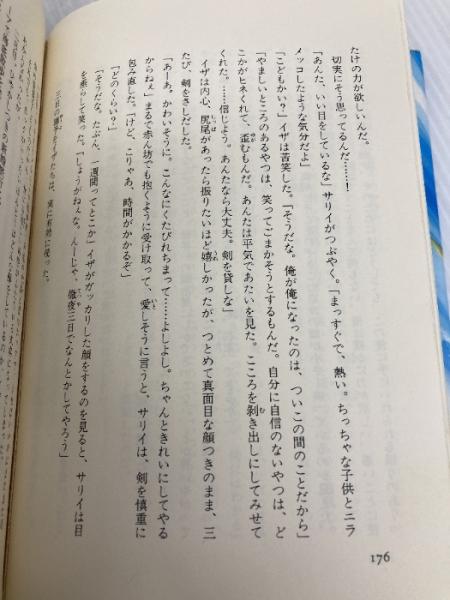 だけの力が欲しいんだ。
切実にそう思ってるんだ……!
「あんた、いい目をしているな」サリイがつぶやく。「まっすぐで、熱い。ちっちゃな子供とニラ
メッコしたような気分だよ」
「こどもかい?」イザは苦笑した。「そうだな。俺が俺になったのは、ついこの間のことだから」
「やましいところのあるやつは、笑ってごまかそうとするもんだ。自分に自信のないやつは、ど
こかがヒネくれて、歪むもんだ。あんたは平気であたいを見た。こころを剝き出しにしてみせて
くれた。……信じよう。あんたなら大丈夫。剣を貸しな」
イザは内心、尻尾があったら振りたいほど嬉しかったが、つとめて真面目な顔つきのまま、三
たび、剣をさしだした。
「あーあ。かわいそうに。こんなにくたびれちまって……よしよし。ちゃんときれいにしてやる
からねぇ」まるで赤ん坊でも抱くように受け取って、愛しそうに言うと、サリイは、剣を慎重に
包み直した。「けど、こりゃあ、時間がかかるぞ」
「どのくらい?」
「そうだな。たぶん、一週間ってとこか」イザがガッカリした顔をするのを見ると、サリイは目
を垂らして笑った。「しょうがねぇな。んーじゃ、徹夜三日でなんとかしてやろう」
三日の間
イザたちは、実に有効に使った。
176